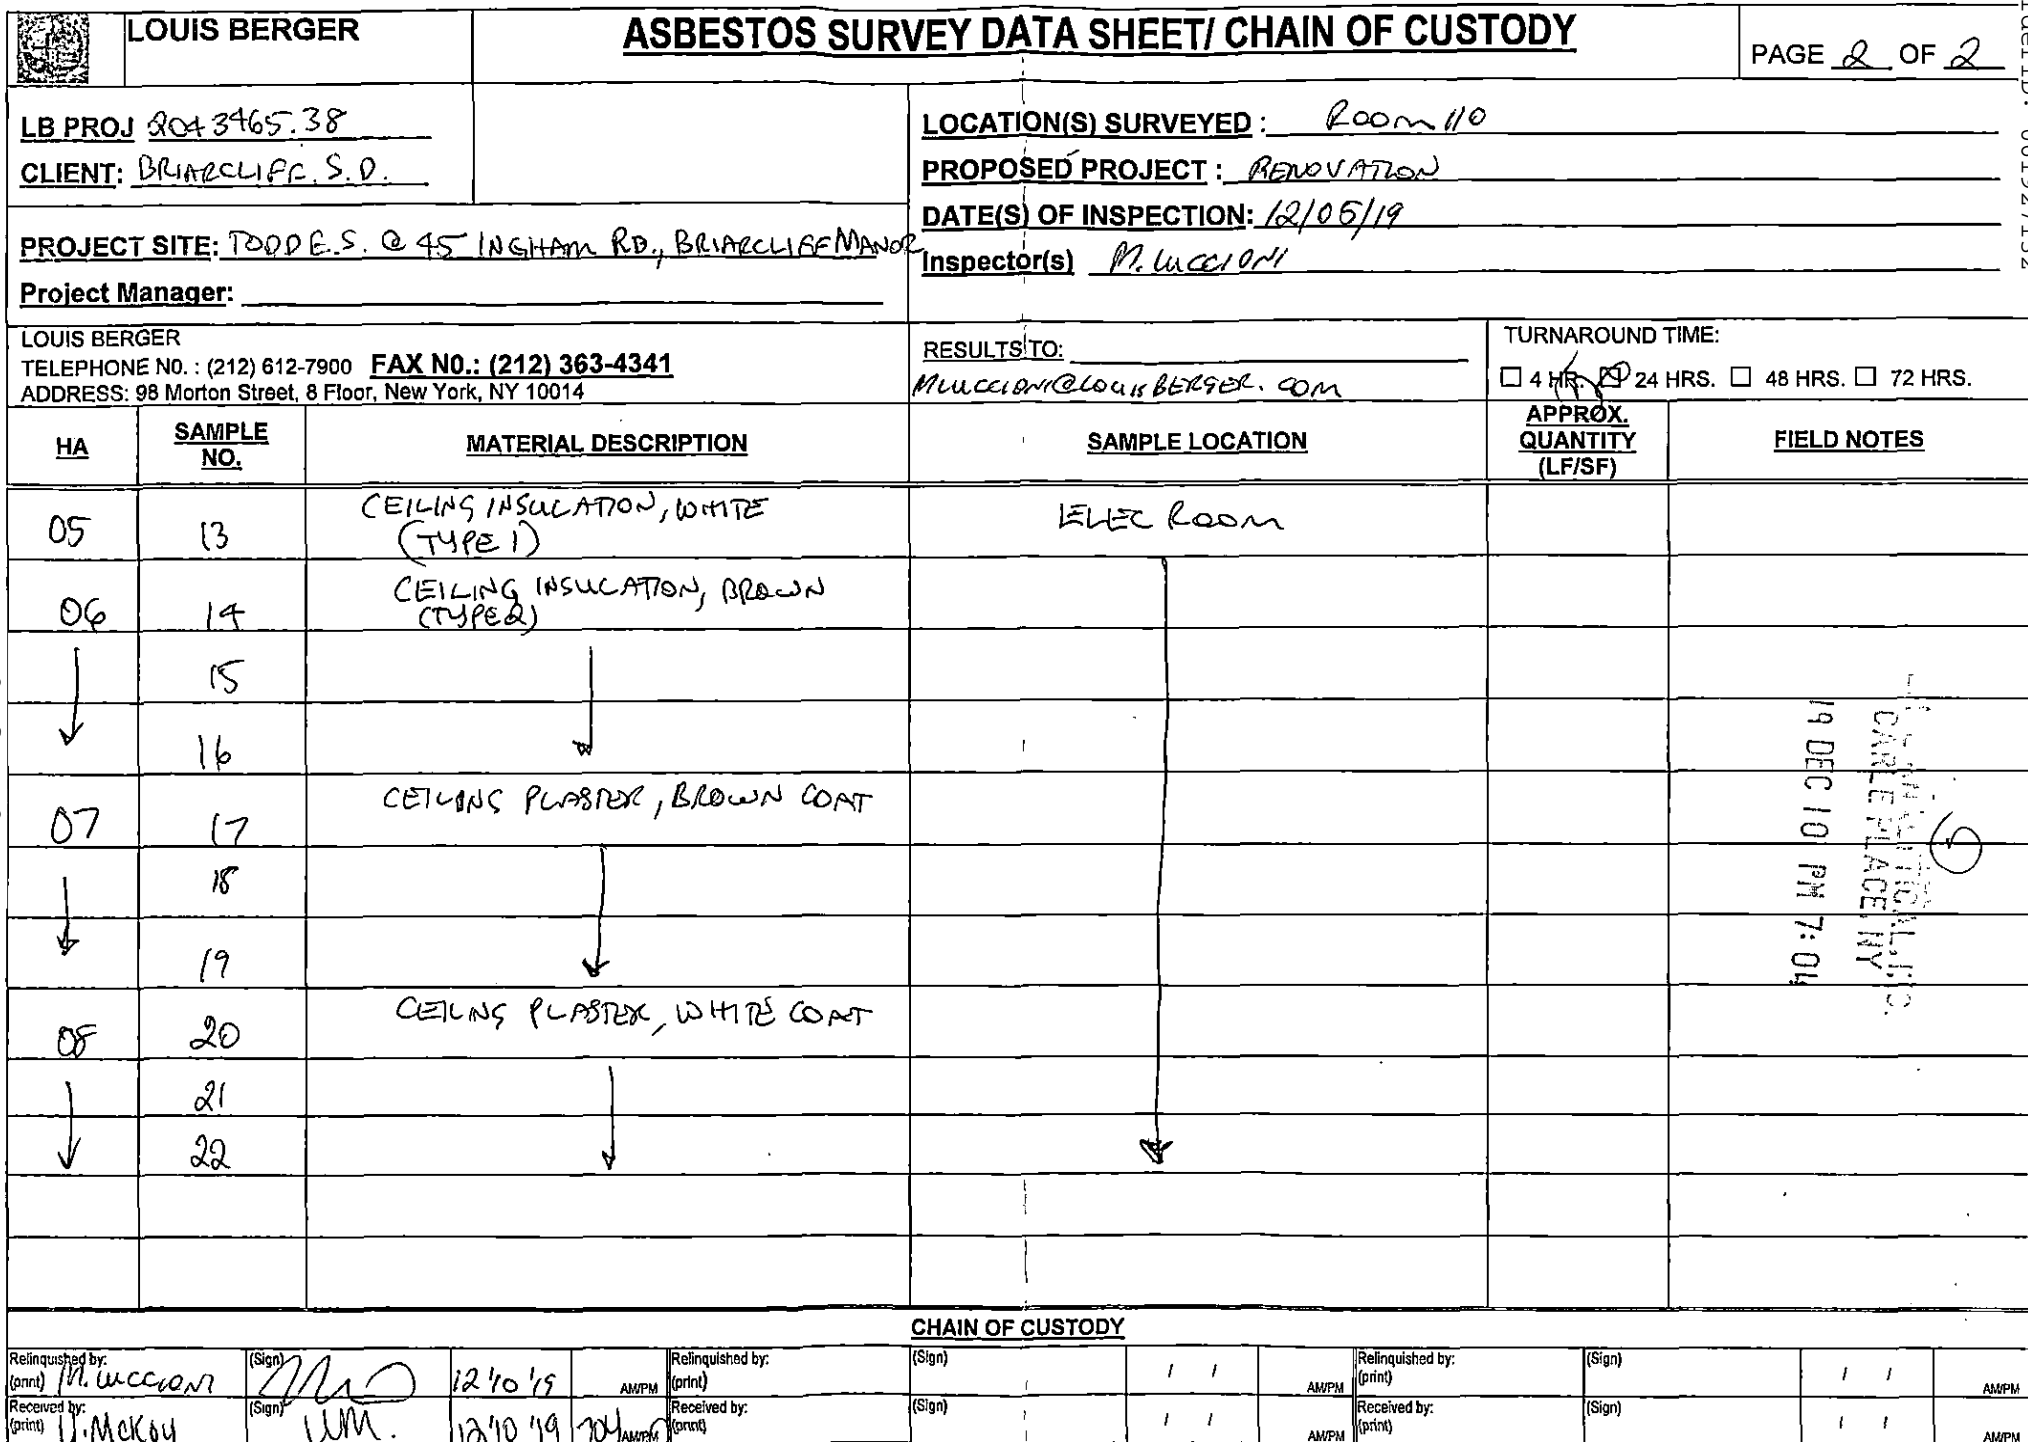 LOUIS BERGER
ASBESTOS SURVEY DATA SHEET/ CHAIN OF CUSTODY
PAGE 2 OF 2
LB PROJ 2043465.38
CLIENT: BRIARCLIFF. S.D.
PROJECT SITE: TODD E.S. @ 45 INGHAM RD., BRIARCLIFF MANOR
Project Manager:
LOCATION(S) SURVEYED : ROOM 110
PROPOSED PROJECT : RENOVATION
DATE(S) OF INSPECTION: 12/05/19
Inspector(s) M. LUCCIONI
LOUIS BERGER
TELEPHONE N0. : (212) 612-7900 FAX N0.: (212) 363-4341
ADDRESS: 98 Morton Street, 8 Floor, New York, NY 10014
RESULTS TO:
MLUCCIONI@LOUISBERGER.COM
TURNAROUND TIME:
☐ 4 HR. ☒ 24 HRS. ☐ 48 HRS. ☐ 72 HRS.
HA SAMPLE NO. MATERIAL DESCRIPTION SAMPLE LOCATION APPROX. QUANTITY (LF/SF) FIELD NOTES
05 13 CEILING INSULATION, WHITE (TYPE 1) ELEC ROOM
06 14 CEILING INSULATION, BROWN (TYPE 2)
15
16
07 17 CEILING PLASTER, BROWN COAT
18
19
08 20 CEILING PLASTER, WHITE COAT
21
22
CARLE PLACE, NY
19 DEC 10 PM 7:04
CHAIN OF CUSTODY
Relinquished by: (print) M. LUCCIONI (Sign) 12/10/19 AM/PM
Relinquished by: (print) (Sign) / / AM/PM
Relinquished by: (print) (Sign) / / AM/PM
Received by: (print) V. McKoy (Sign) 12/10/19 704 AM/PM
Received by: (print) (Sign) / / AM/PM
Received by: (print) (Sign) / / AM/PM